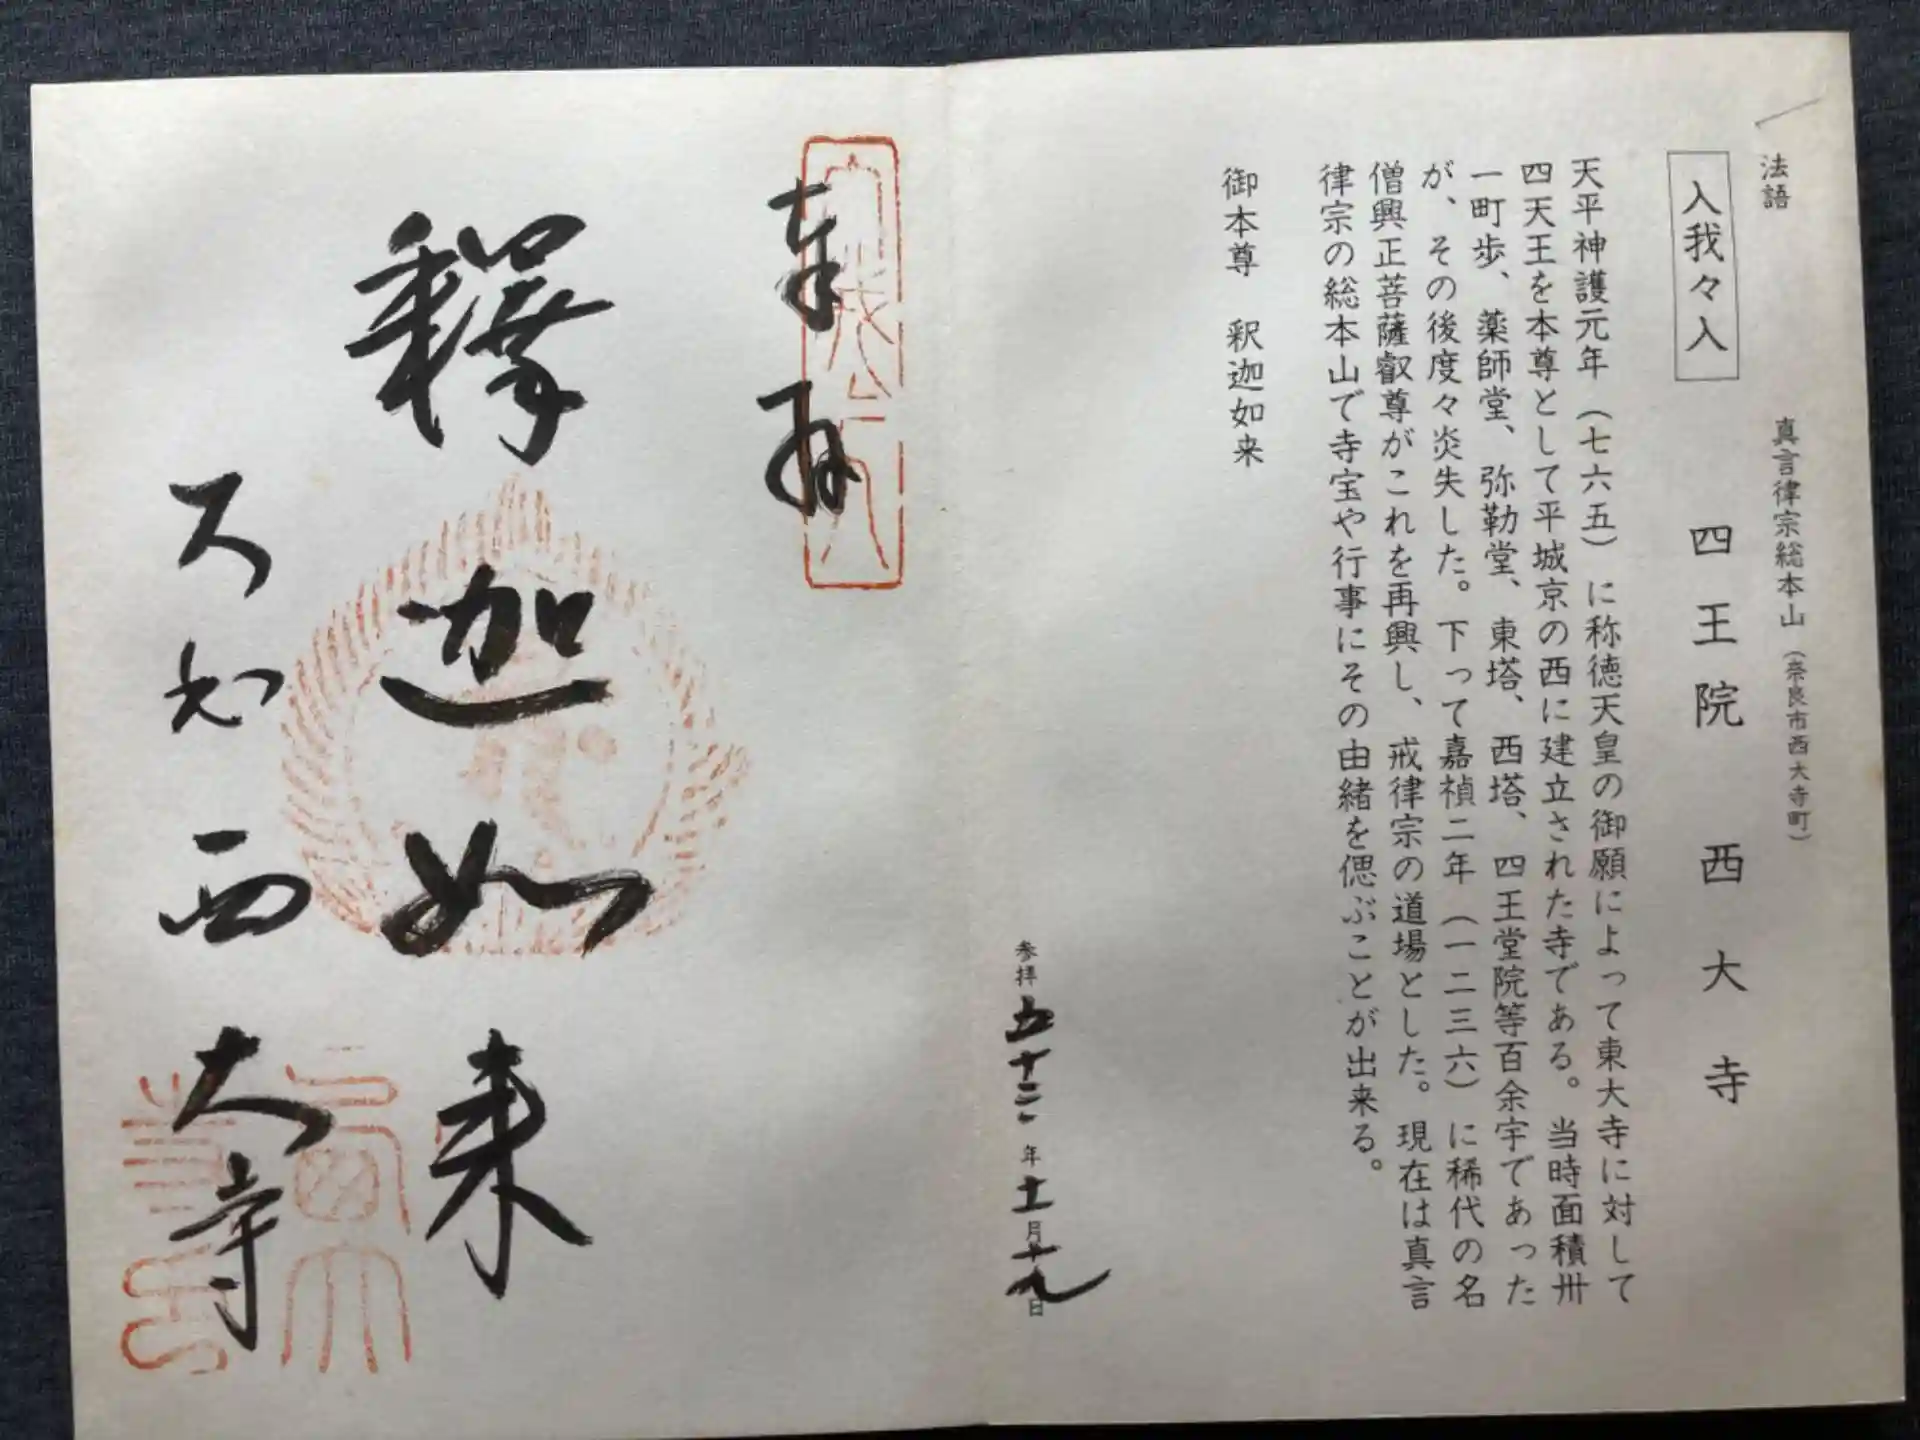 法語
真言律宗総本山（奈良市西大寺町）
入我々入
四王院 西大寺
天平神護元年（七六五）に称徳天皇の御願によって東大寺に対して
四天王を本尊として平城京の西に建立された寺である。当時面積卅
一町歩、薬師堂、弥勒堂、東塔、西塔、四王堂院等百余宇であった
が、その後度々炎失した。下って嘉禎二年（一二三六）に稀代の名
僧興正菩薩叡尊がこれを再興し、戒律宗の道場とした。現在は真言
律宗の総本山で寺宝や行事にその由緒を偲ぶことが出来る。
御本尊 釈迦如来
参拝五十三年十一月十九日
奉拝
釋迦如来
西大寺